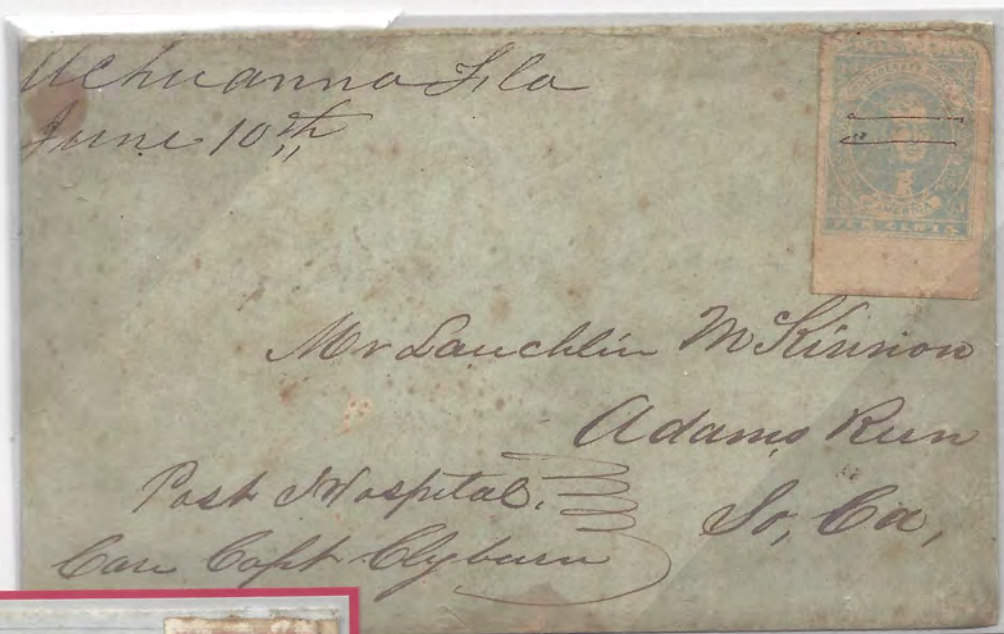 Uchuanna Fla
June 10th
AMERICA
TEN CENTS
Mr Lauchlin McKinnon
Adams Run
Post Hospital.
So, Ca,
Care Capt Clyburn